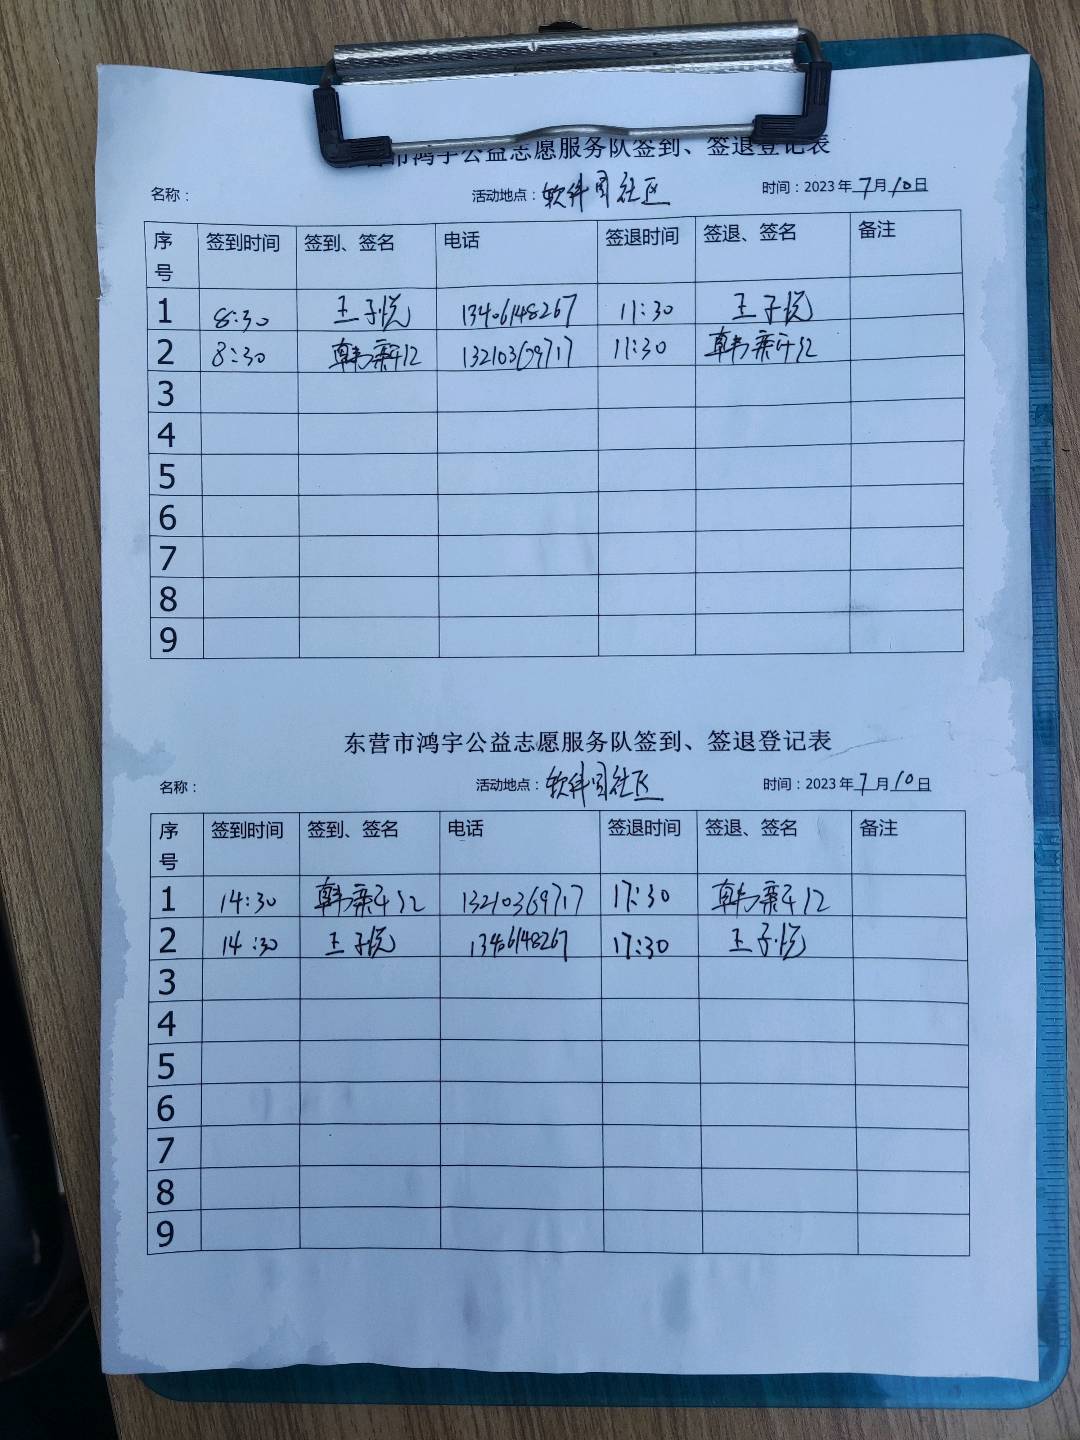 营市鸿宇公益志愿服务队签到、签退登记表
名称： 活动地点：软件园社区 时间：2023年7月10日
序号 签到时间 签到、签名 电话 签退时间 签退、签名 备注
1 8:30 王子悦 13406148267 11:30 王子悦
2 8:30 韩 13210369717 11:30 韩
3
4
5
6
7
8
9
东营市鸿宇公益志愿服务队签到、签退登记表
名称： 活动地点：软件园社区 时间：2023年7月10日
序号 签到时间 签到、签名 电话 签退时间 签退、签名 备注
1 14:30 韩 13210369717 17:30 韩
2 14:30 王子悦 13406148267 17:30 王子悦
3
4
5
6
7
8
9